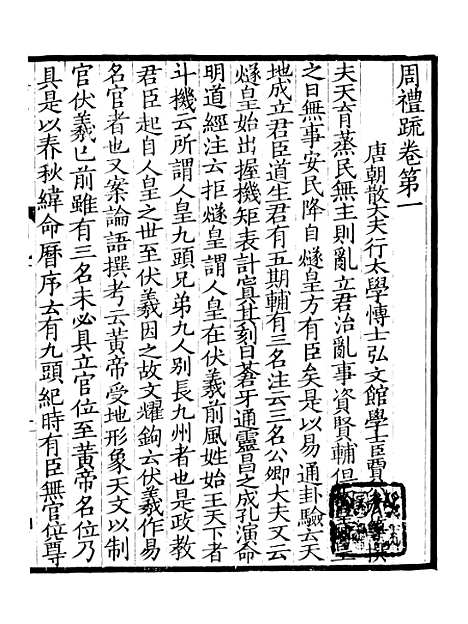 周禮疏卷第一
唐朝散大夫行太學博士弘文館學士臣賈公彥等撰
夫天育蒸民無主則亂立君治亂事資賢輔但
之日無事安民降自燧皇方有臣矣是以易通卦驗云天
地成立君臣道生君有五期輔有三名注云三名公卿大夫又云
燧皇始出握機矩表計寘其刻曰蒼牙通靈昌之成孔演命
明道經注云拒燧皇謂人皇在伏羲前風姓始王天下者
斗機云所謂人皇九頭兄弟九人别長九州者也是政教
君臣起自人皇之世至伏羲因之故文耀鉤云伏羲作易
名官者也又案論語撰考云黄帝受地形象天文以制
官伏羲已前雖有三名未必具立官位至黄帝名位乃
具是以春秋緯命曆序云有九頭紀時有臣無官位尊